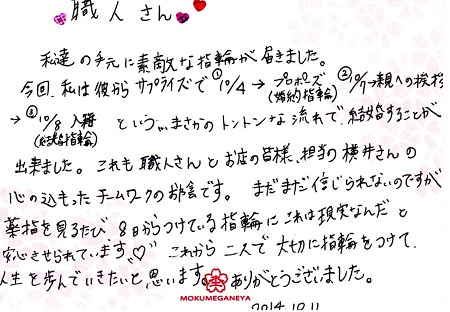 職人さん
私達の手元に素敵な指輪が届きました。
今回、私は彼からサプライズで①10/4→プロポーズ(婚約指輪)②10/7→親への挨拶
→③10/8 入籍(結婚指輪) という…まさかのトントンな流れで、結婚することが
出来ました。これも職人さんとお店の皆様、担当の横井さんの
心の込もったチームワークのお陰です。まだまだ信じられないのですが
薬指を見るたび8日からつけている指輪にこれは現実なんだと
安心させられています"♡" これから二人で大切に指輪をつけて、
人生を歩んでいきたいと思います。ありがとうございました。
MOKUMEGANEYA
2014.10.11